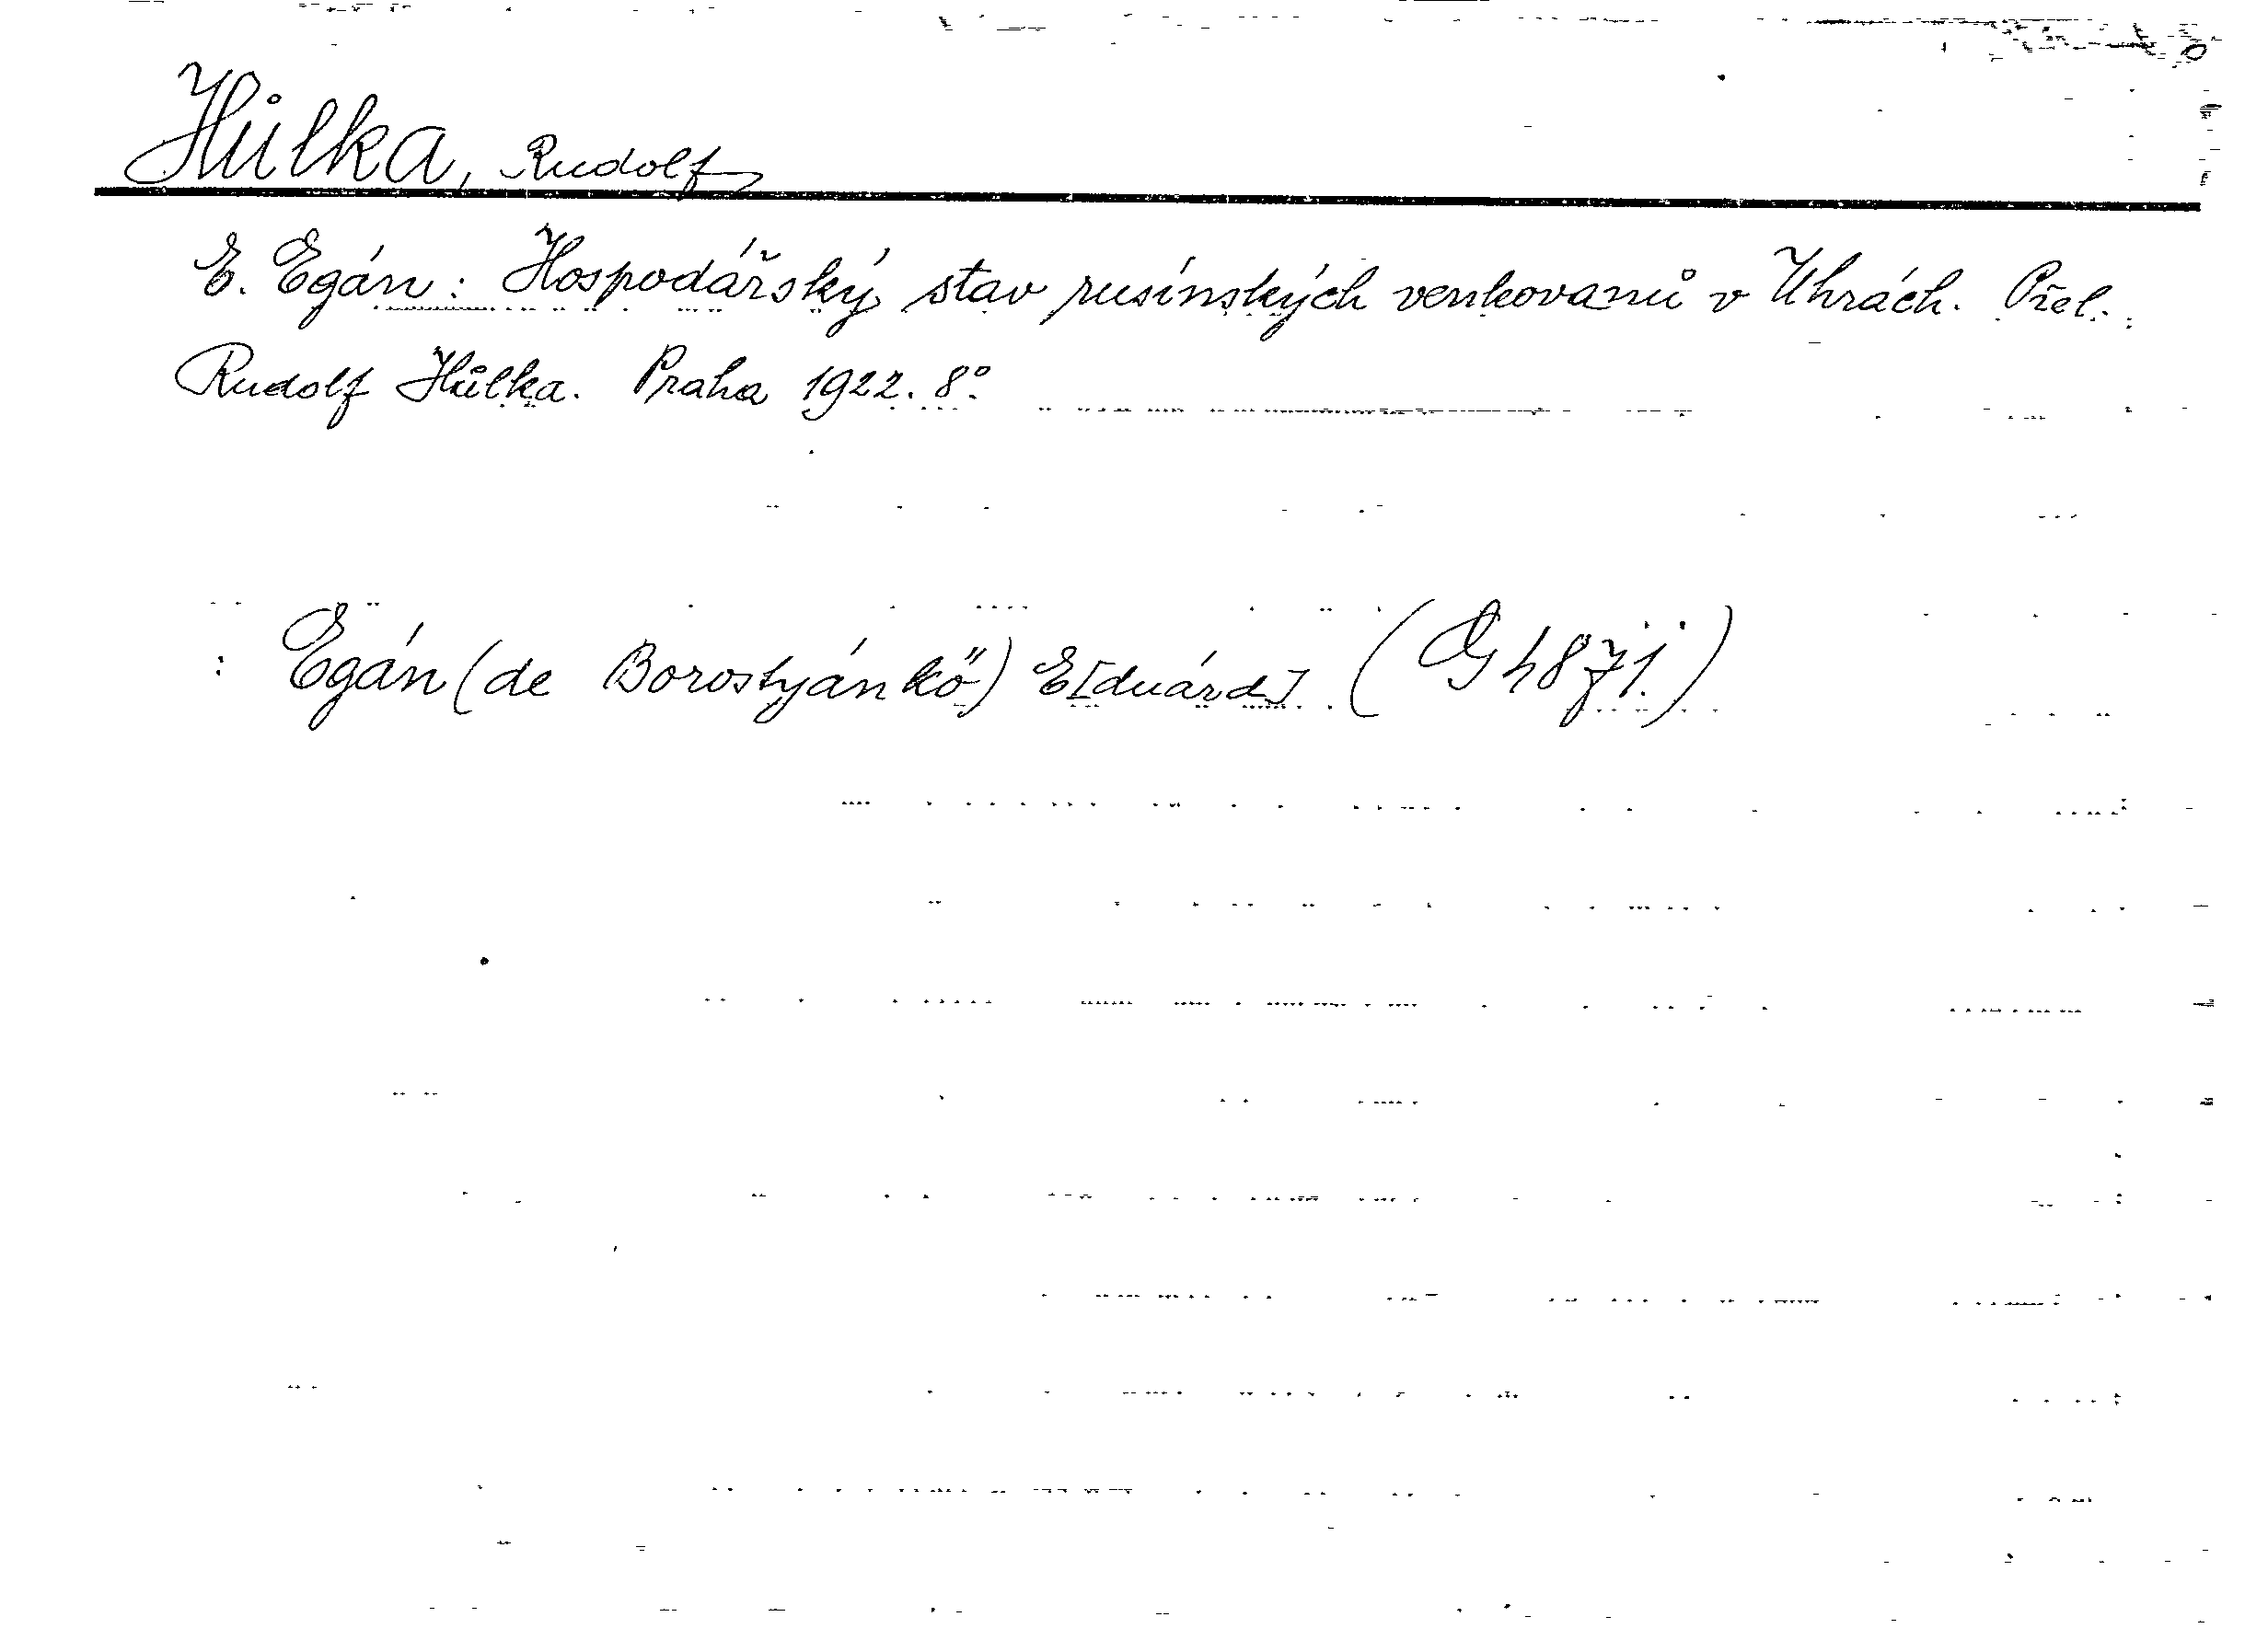 Hůlka, Rudolf
E. Egán: Hospodářský stav rusínských venkovanů v Uhrách. Přel.
Rudolf Hůlka. Praha 1922. 8°
: Egán (de Borostyánkő) E[duárd]